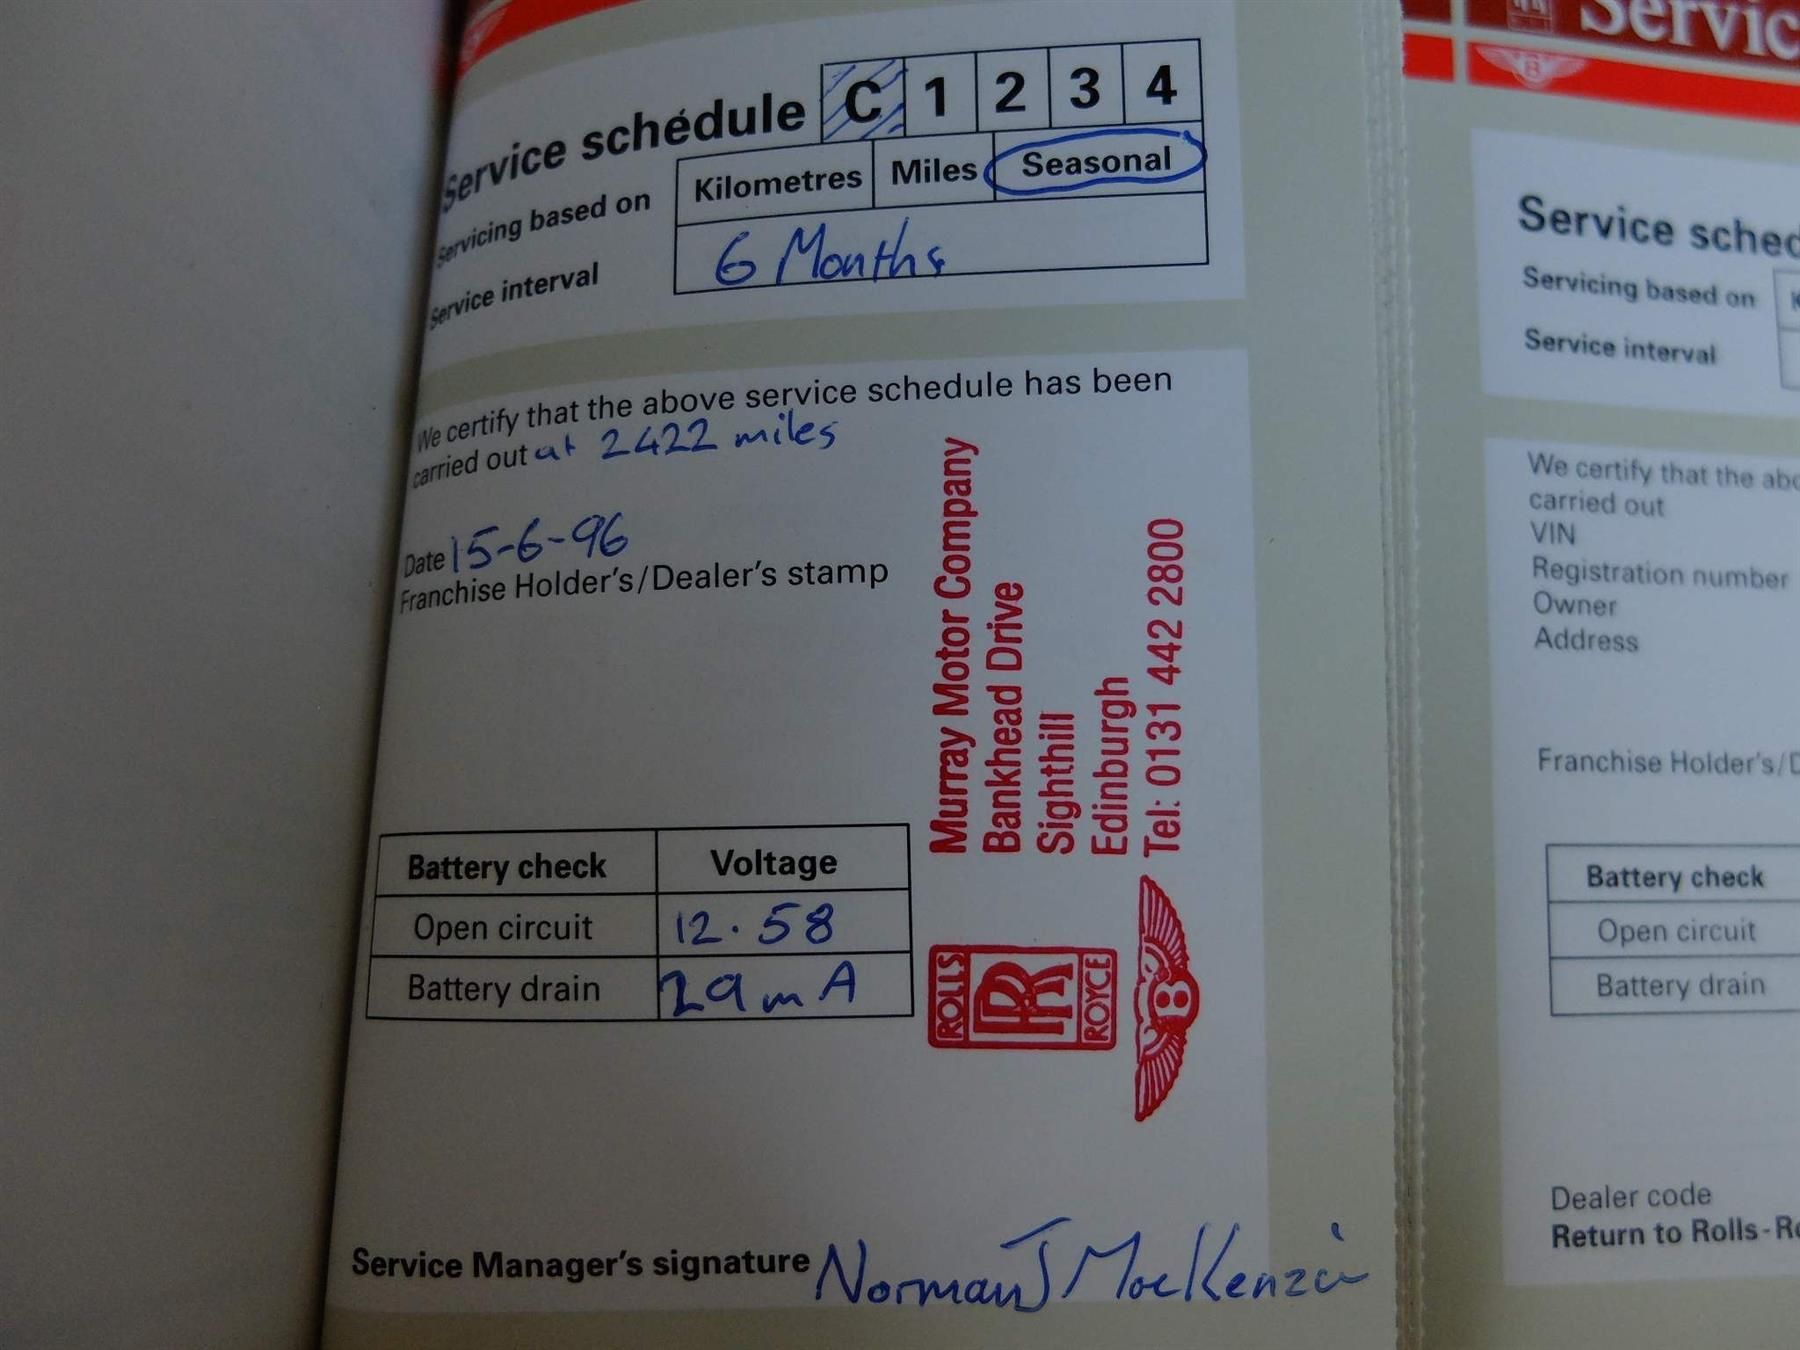 Service schedule C 1 2 3 4
Servicing based on Kilometres Miles Seasonal
Service interval 6 Months
We certify that the above service schedule has been
carried out at 2422 miles
Date 15-6-96
Franchise Holder's/Dealer's stamp
Murray Motor Company
Bankhead Drive
Sighthill
Edinburgh
Tel: 0131 442 2800
ROLLS RR ROYCE
B
Battery check Voltage
Open circuit 12.58
Battery drain 29mA
Service Manager's signature Norman J MacKenzie
Servic
B
Service sched
Servicing based on K
Service interval
We certify that the abo
carried out
VIN
Registration number
Owner
Address
Franchise Holder's/D
Battery check
Open circuit
Battery drain
Dealer code
Return to Rolls-Ro